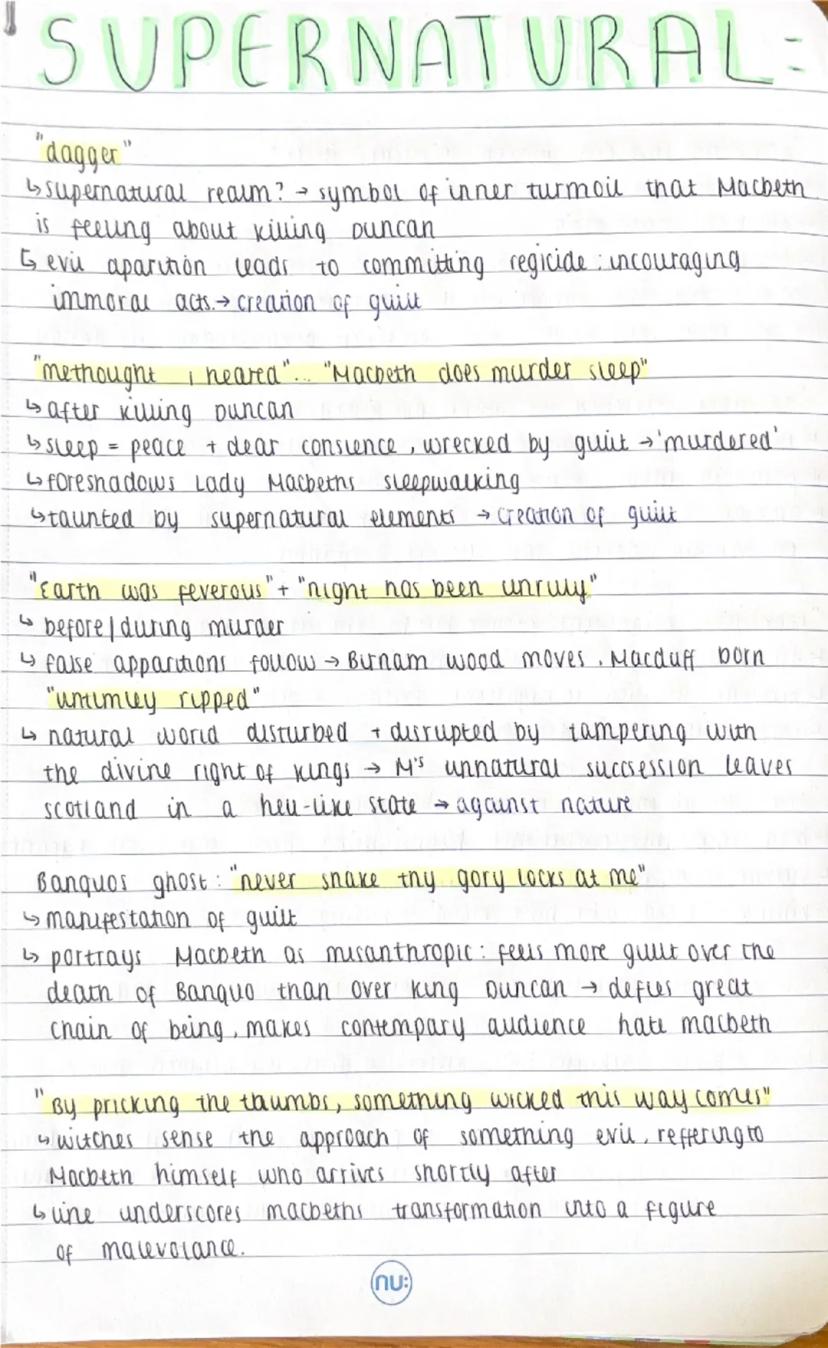 SUPERNATURAL:
"dagger"
↳ supernatural realm? → symbol of inner turmoil that Macbeth
is feeling about killing Duncan
↳ evil aparition leads to committing regicide : incouraging
immoral acts. → creation of guilt
"methought i heared"... "Macbeth does murder sleep"
↳ after killing Duncan
↳ sleep = peace + clear consience, wrecked by guilt → 'murdered'
↳ foreshadows Lady Macbeths sleepwalking
↳ taunted by supernatural elements → creation of guilt
"Earth was feverous" + "night has been unruly"
↳ before/during murder
↳ false apparitions follow → Birnam wood moves, Macduff born
"untimley ripped"
↳ natural world disturbed + disrupted by tampering with
the divine right of kings → M's unnatural succsession leaves
scotland in a hell-like state → against nature
Banquos ghost : "never shake thy gory locks at me"
↳ manifestation of guilt
↳ portrays Macbeth as misanthropic : feels more guilt over the
death of Banquo than over king Duncan → defies great
chain of being, makes contempary audience hate macbeth
"By pricking the thumbs, something wicked this way comes"
↳ witches sense the approach of something evil, reffering to
Macbeth himself who arrives shortly after
↳ line underscores macbeths transformation into a figure
of malevolance.
nu: